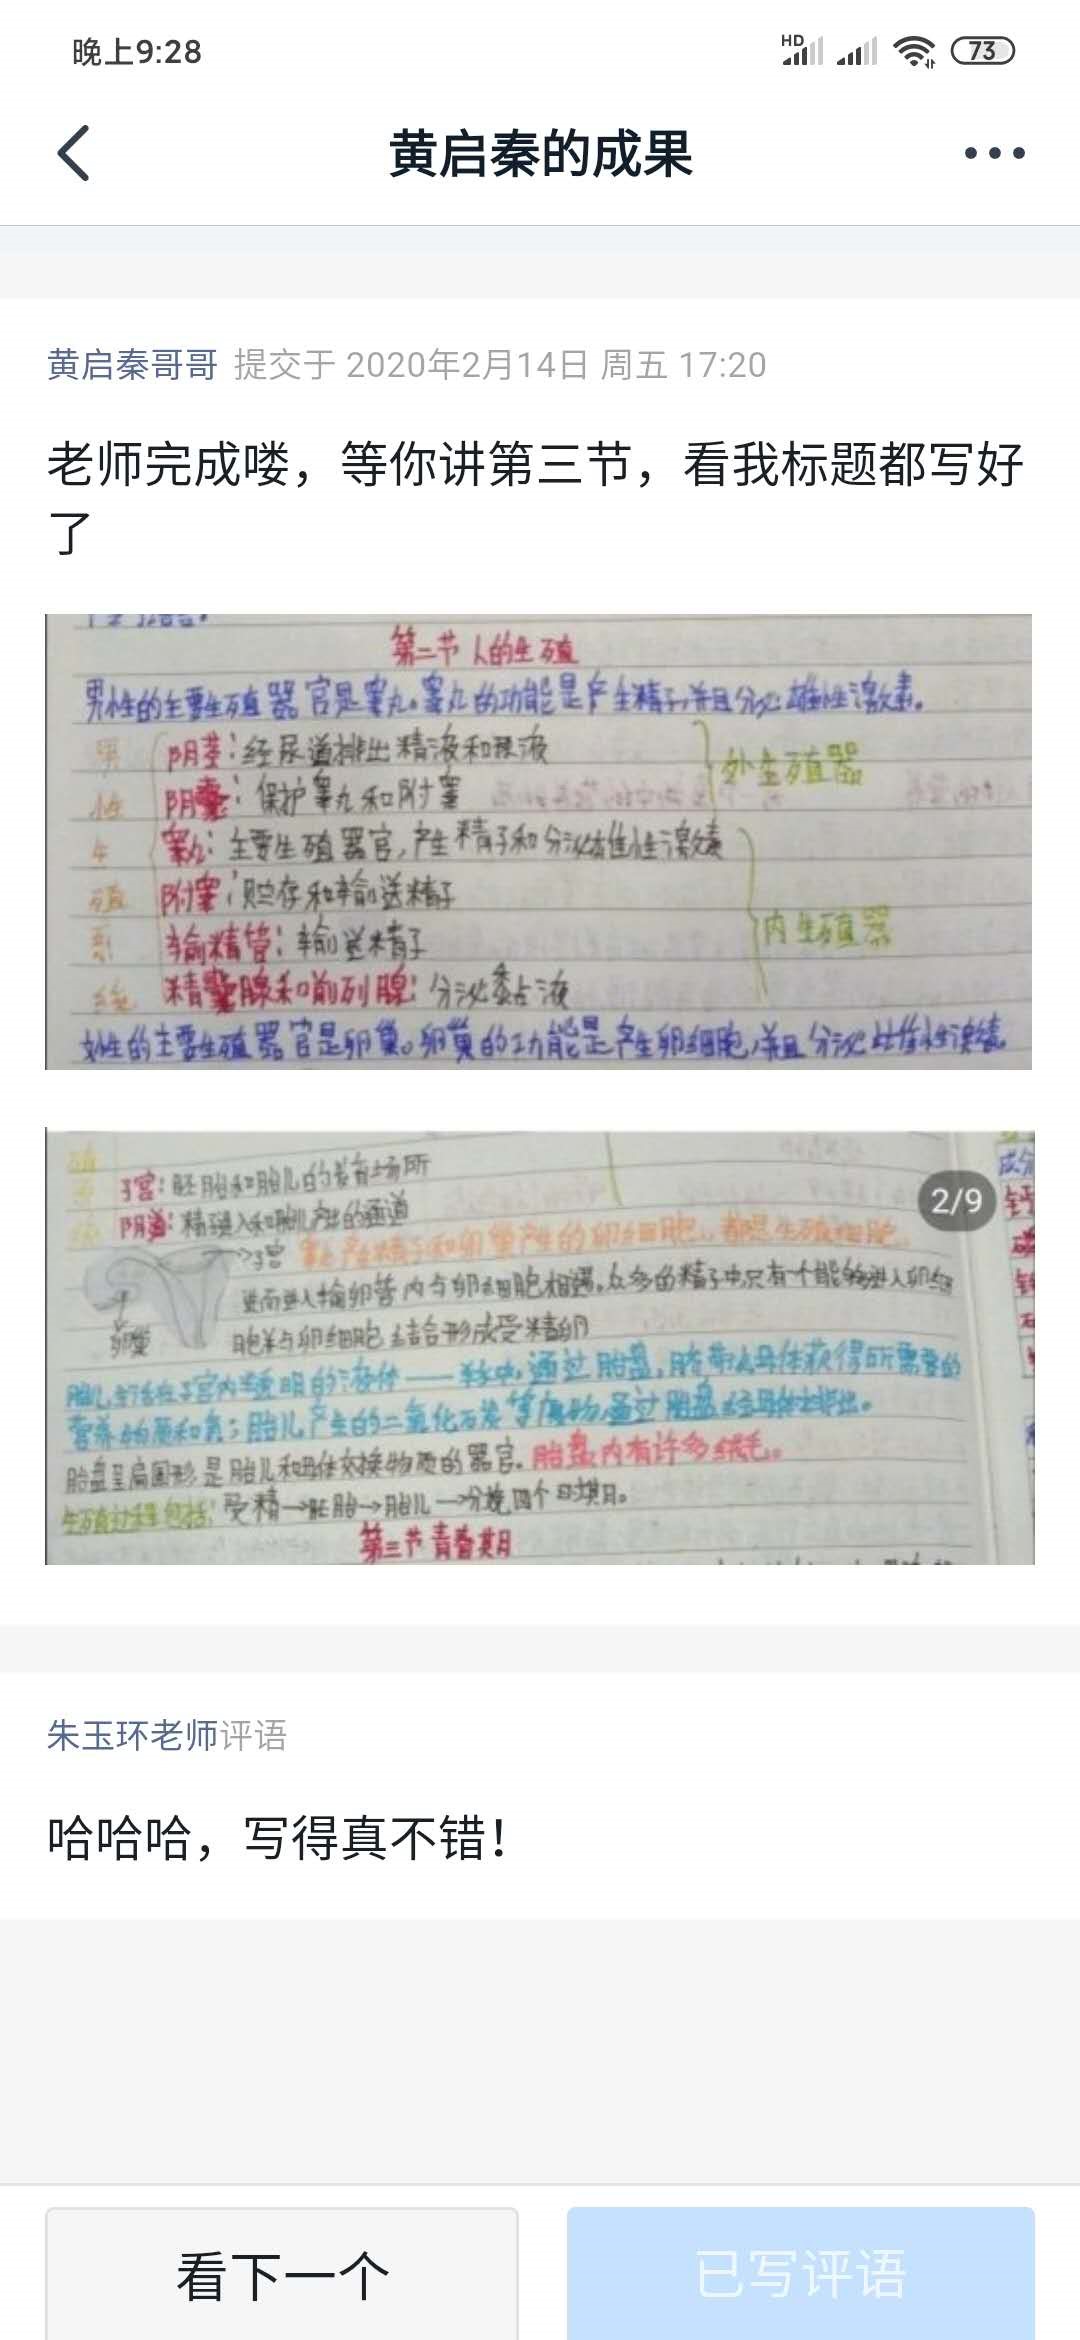 晚上9:28
HD
73
黄启秦的成果
黄启秦哥哥 提交于 2020年2月14日 周五 17:20
老师完成喽，等你讲第三节，看我标题都写好
了
第二节 人的生殖
男性的主要生殖器官是睾丸。睾丸的功能是产生精子并且分泌雄性激素。
男性生殖系统
阴茎：经尿道排出精液和尿液
阴囊：保护睾丸和附睾
外生殖器
睾丸：主要生殖器官，产生精子和分泌雄性激素
附睾：贮存和输送精子
输精管：输送精子
内生殖器
精囊腺和前列腺：分泌黏液
女性的主要生殖器官是卵巢。卵巢的功能是产生卵细胞，并且分泌雌性激素。
2/9
子宫：胚胎和胎儿的发育场所
阴道：精子进入和胎儿产出的通道
子宫
睾丸产生精子和卵巢产生的卵细胞，都是生殖细胞。
进而进入输卵管内与卵细胞相遇。众多的精子中只有一个能够进入卵细
卵巢
胞并与卵细胞结合形成受精卵
胎儿生活在子宫内半透明的液体——羊水中，通过胎盘，脐带从母体获得所需要的
营养物质和氧；胎儿产生的二氧化碳等废物通过胎盘经母体排出。
胎盘呈扁圆形是胎儿和母体交换物质的器官。胎盘内有许多绒毛。
生殖过程包括：受精→胚胎→胎儿→分娩四个时期。
第三节 青春期
朱玉环老师评语
哈哈哈，写得真不错！
看下一个
已写评语